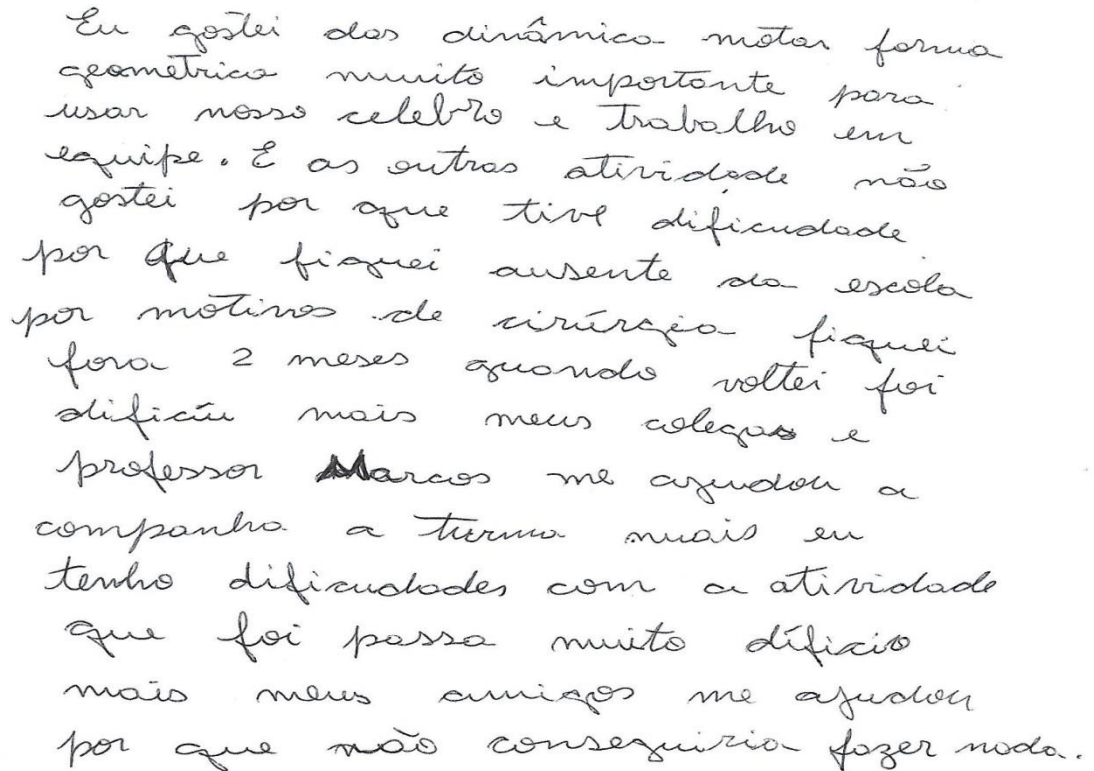 Eu gostei das dinâmica motar forma
geometrica muito importante para
usar nosso celebro e trabalho em
equipe. E as outras atividade não
gostei por que tive dificudade
por que fiquei ausente da escola
por motivos de cirúrgia fiquei
fora 2 meses quando voltei foi
dificíu mais meus colegas e
professor Marcos me ajudou a
companha a turma muais eu
tenho dificudades com a atividade
que foi passa muito dificio
mais meus amigos me ajudou
por que não conseguiria fazer nada.